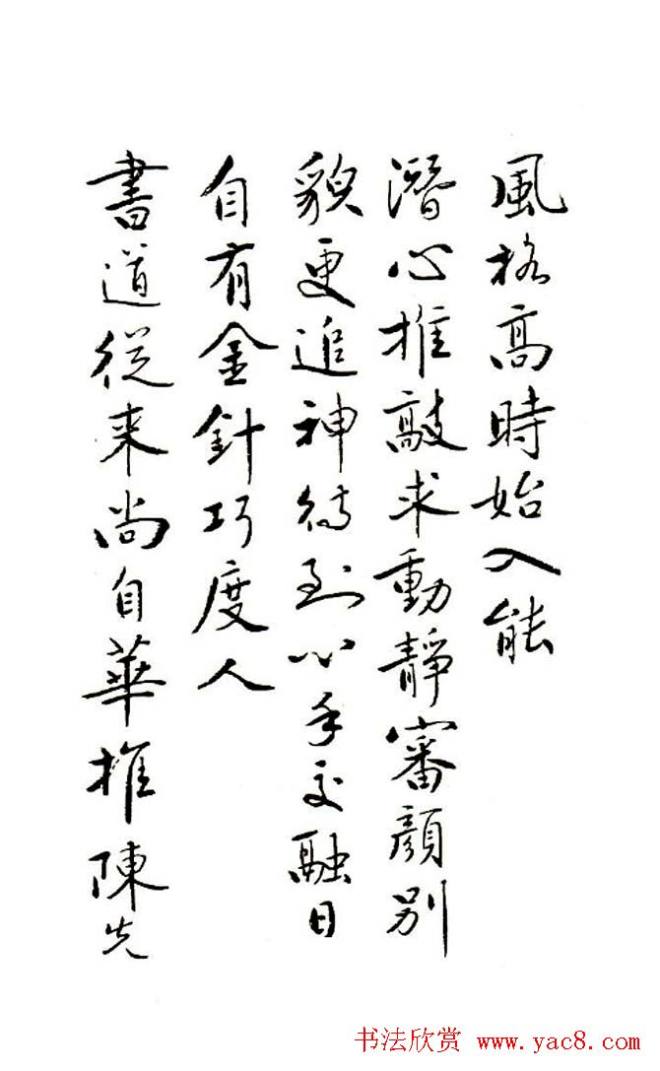 風格高時始入能
潛心推敲求動靜審顏別
貌更追神待到心手交融日
自有金針巧度人
書道從來尚自華推陳先
书法欣赏 www.yac8.com